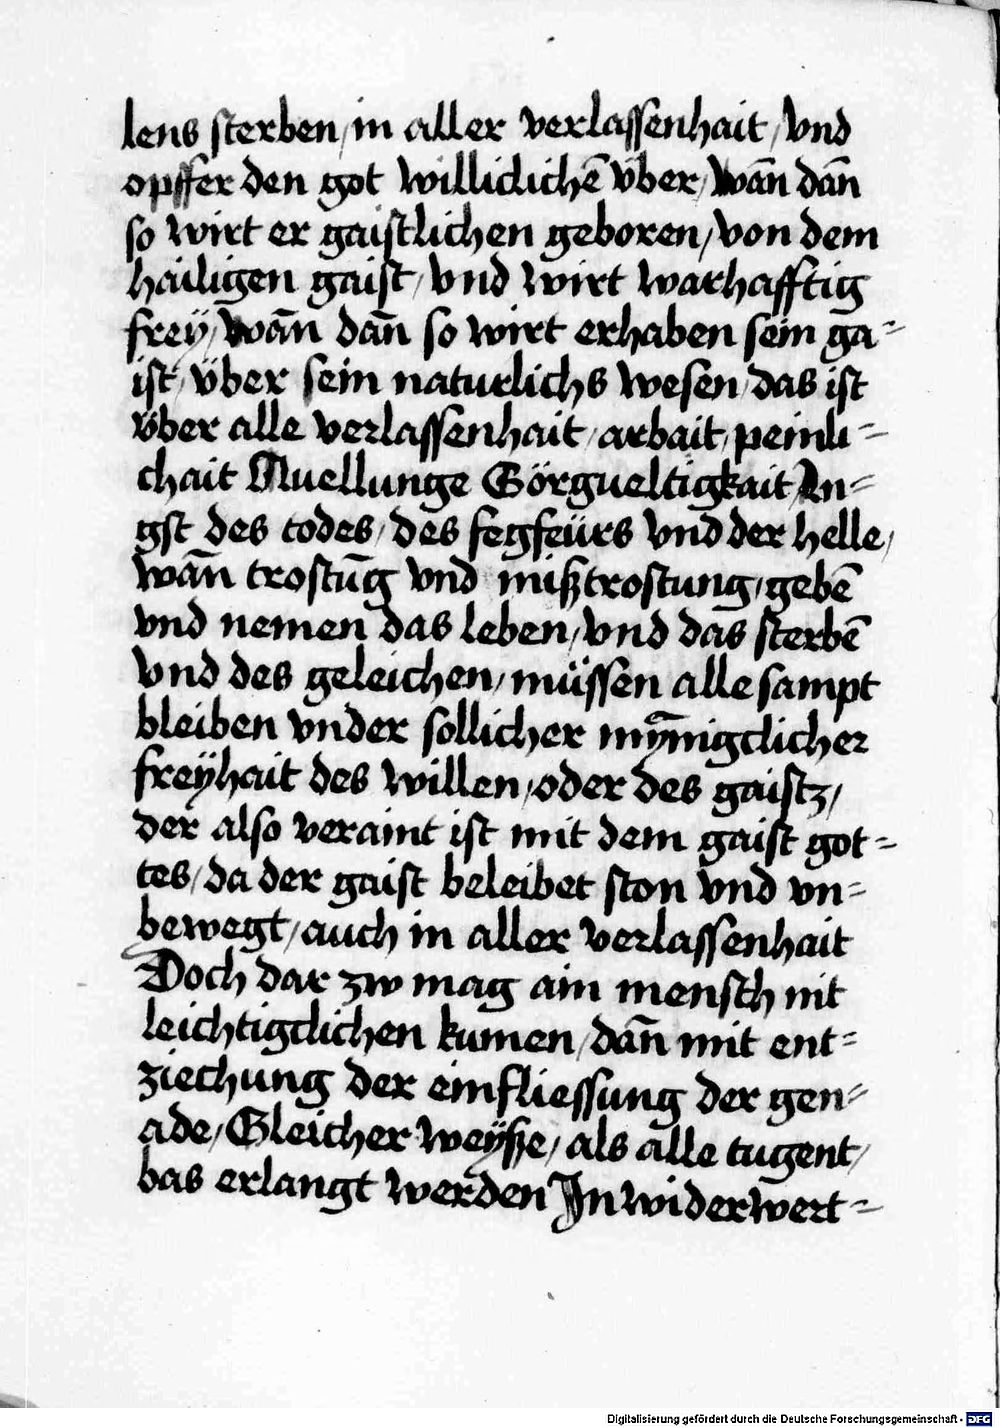 lens sterben / in aller verlassenhait / vnd
opffer den got williclichē v̈ber / wān dān
so wirt er gaistlichen geboren / von dem
hailigen gaist / vnd wirt warhafftig
freÿ / wān dān so wirt erhaben sein ga=
ist / v̈ber sein naturlichs wesen / das ist
v̈ber alle verlassenhait / arbait / peinli=
chait Quellunge Sörgueltigkait An=
gst des todes / des fegfeürs vnd der helle /
wān trostūg vnd mißtrostung / gebē
vnd nemen das leben / vnd das sterbē
vnd des geleichen / müssen alle sampt
bleiben vnder sollicher mȳnigclicher
freÿhait des willen / oder des gaistz /
der also veraint ist mit dem gaist got=
tes / da der gaist beleibet ston vnd vn=
bewegt / auch in aller verlassenhait
Doch dar zw mag ain mensch nit
leichtigclichen kumen / dān mit ent=
ziechung der einfliessung der gen=
ade / Gleicher weÿße / als alle tugent /
bas erlangt werden In widerwert=
Digitalisierung gefördert durch die Deutsche Forschungsgemeinschaft - DFG